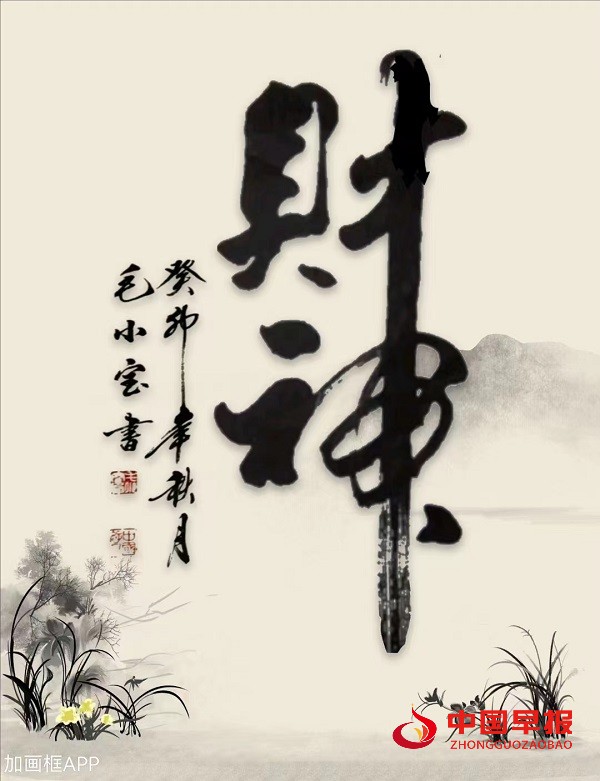 財神
癸卯年秋月
毛小宝書
中国早报
ZHONGGUOZAOBAO
加画框APP